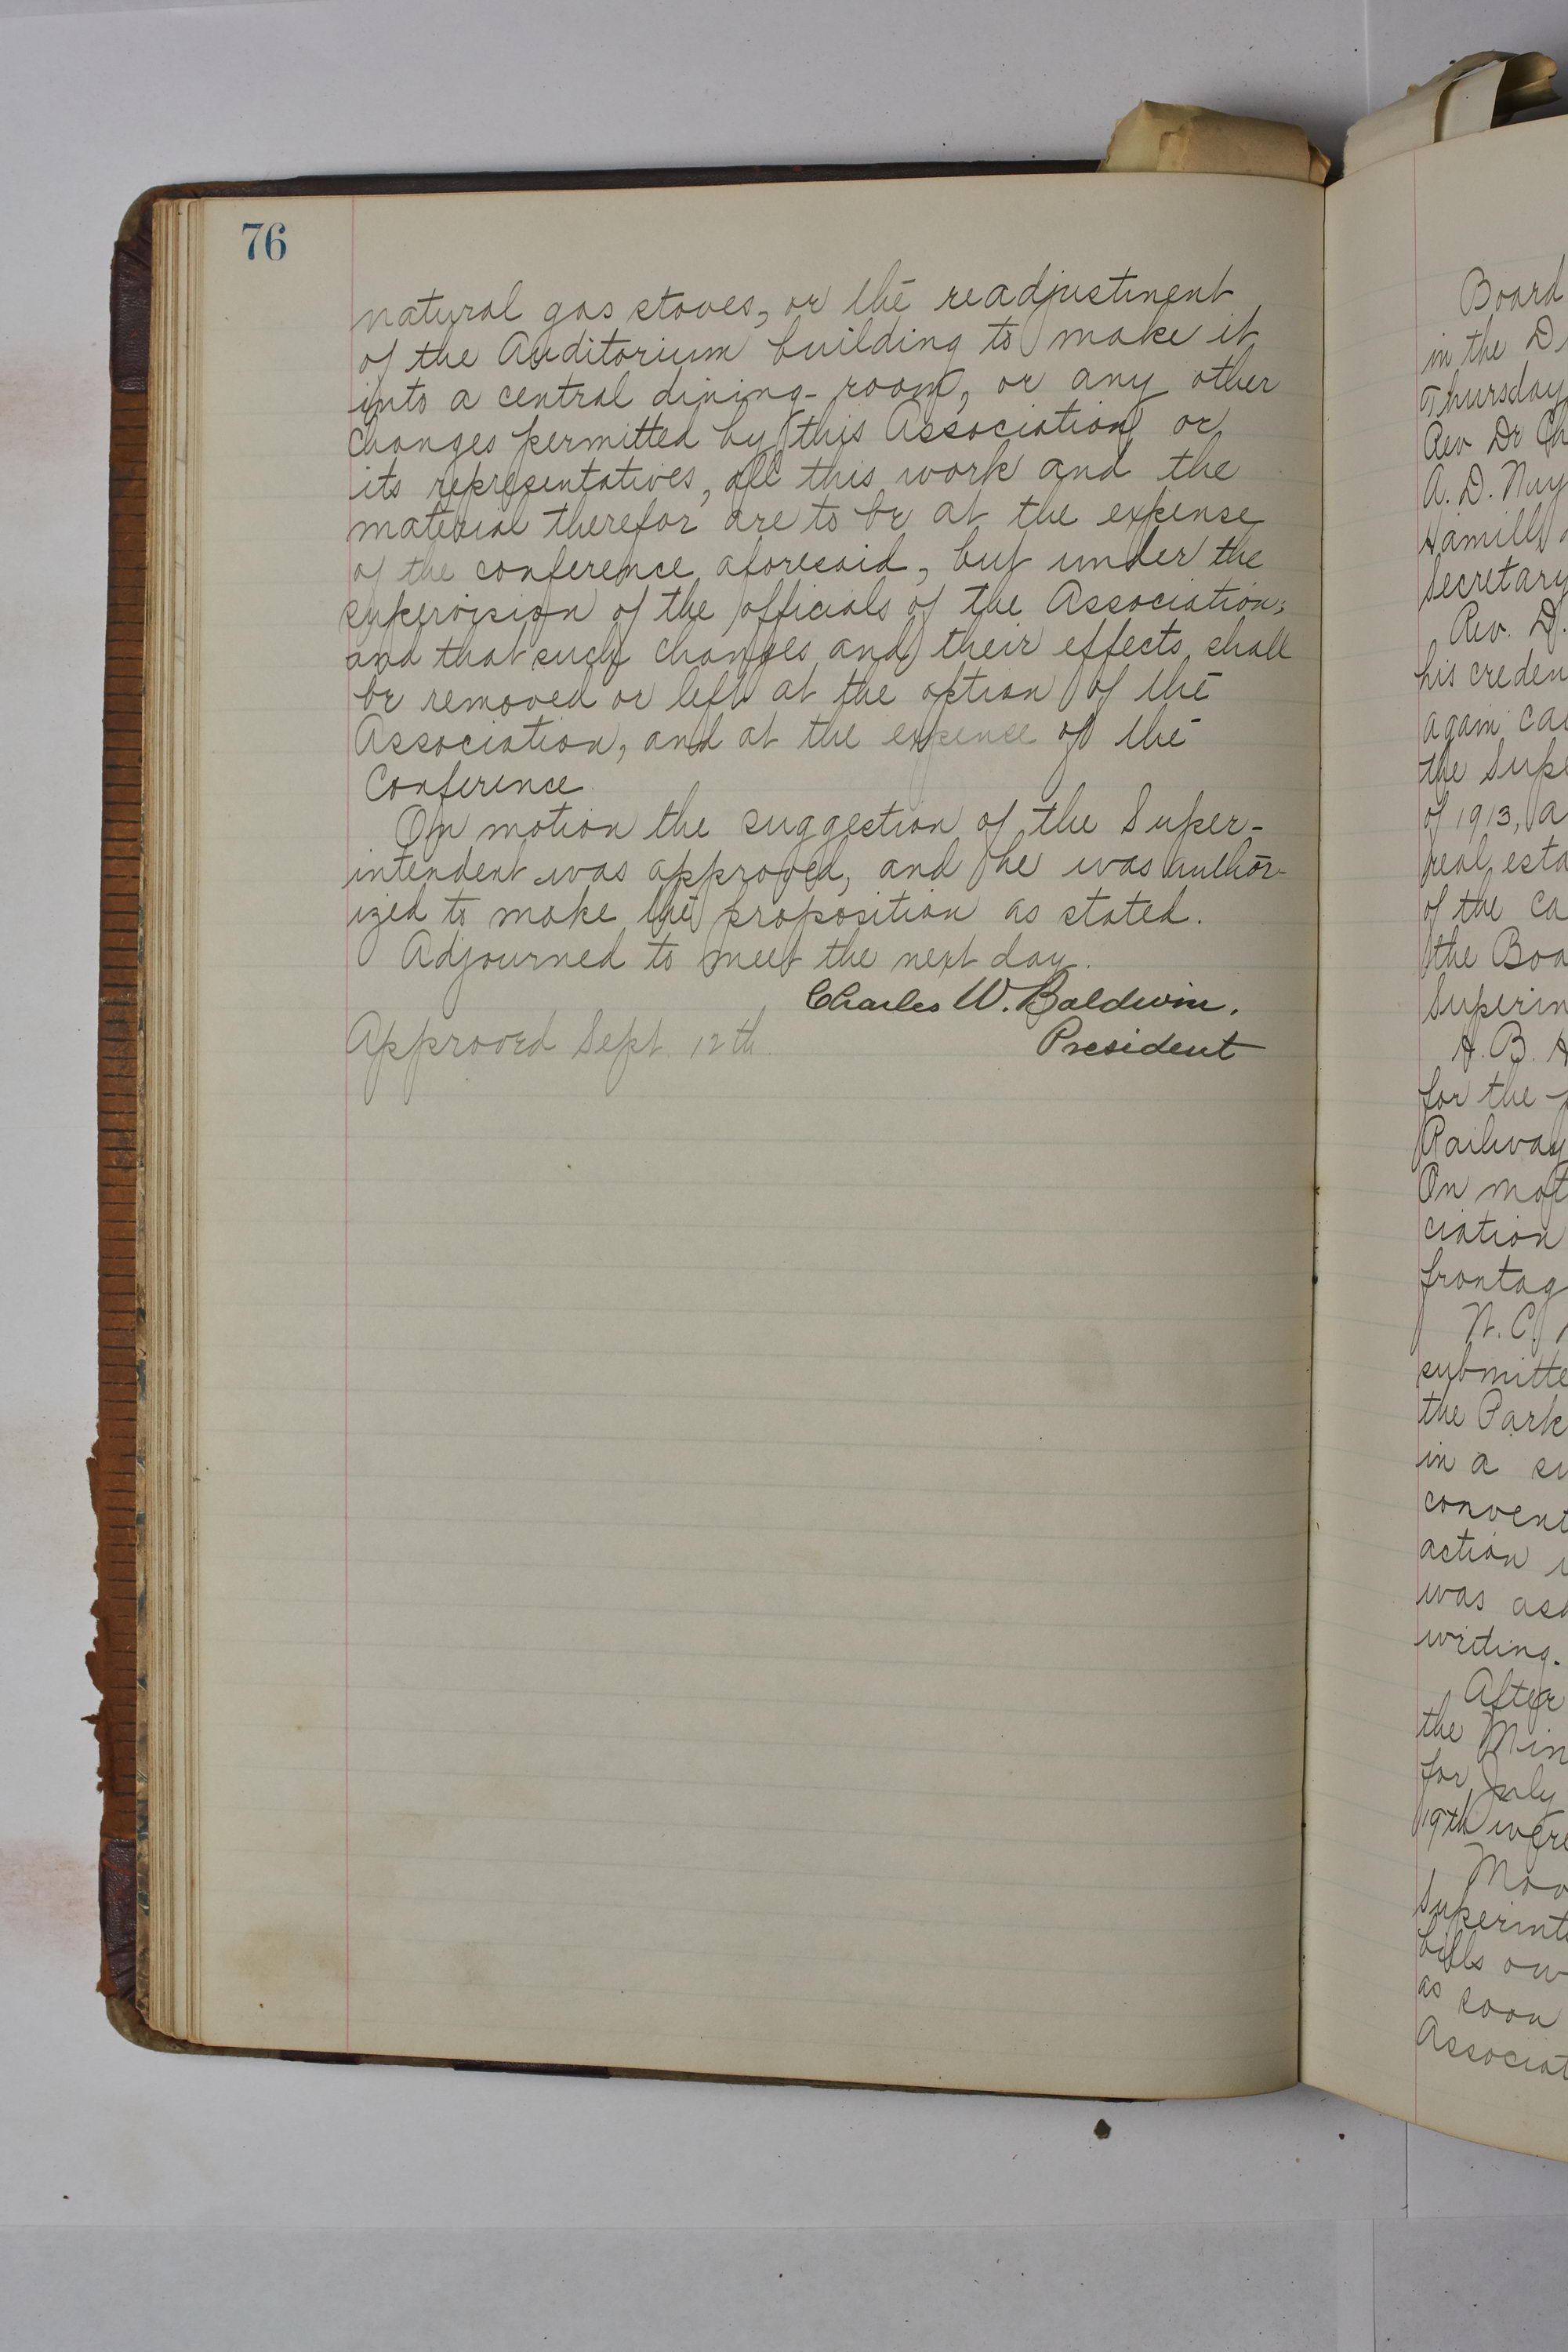 76
natural gas stoves, or the readjustment
of the Auditorium building to make it
into a central dining-room, or any other
changes permitted by this Association or
its representatives, all this work and the
material therefor are to be at the expense
of the conference aforesaid, but under the
supervision of the officials of the Association;
and that such changes and their effects shall
be removed or left at the option of the
Association, and at the expense of the
Conference.
On motion the suggestion of the Super-
intendent was approved, and he was author-
ized to make the proposition as stated.
Adjourned to meet the next day.
Charles W. Baldwin.
Approved Sept. 12th.
President
Board
in the
Thursday
Rev Dr
A. D.
Hamill
Secretary
Rev. D.
his
again
the
of 1913, a
real
of the
the
A. B.
for the
Railway
On
ciation
N. C.
the Park
in a
action
was
writing.
After
the
for July
19th were
bills
as soon